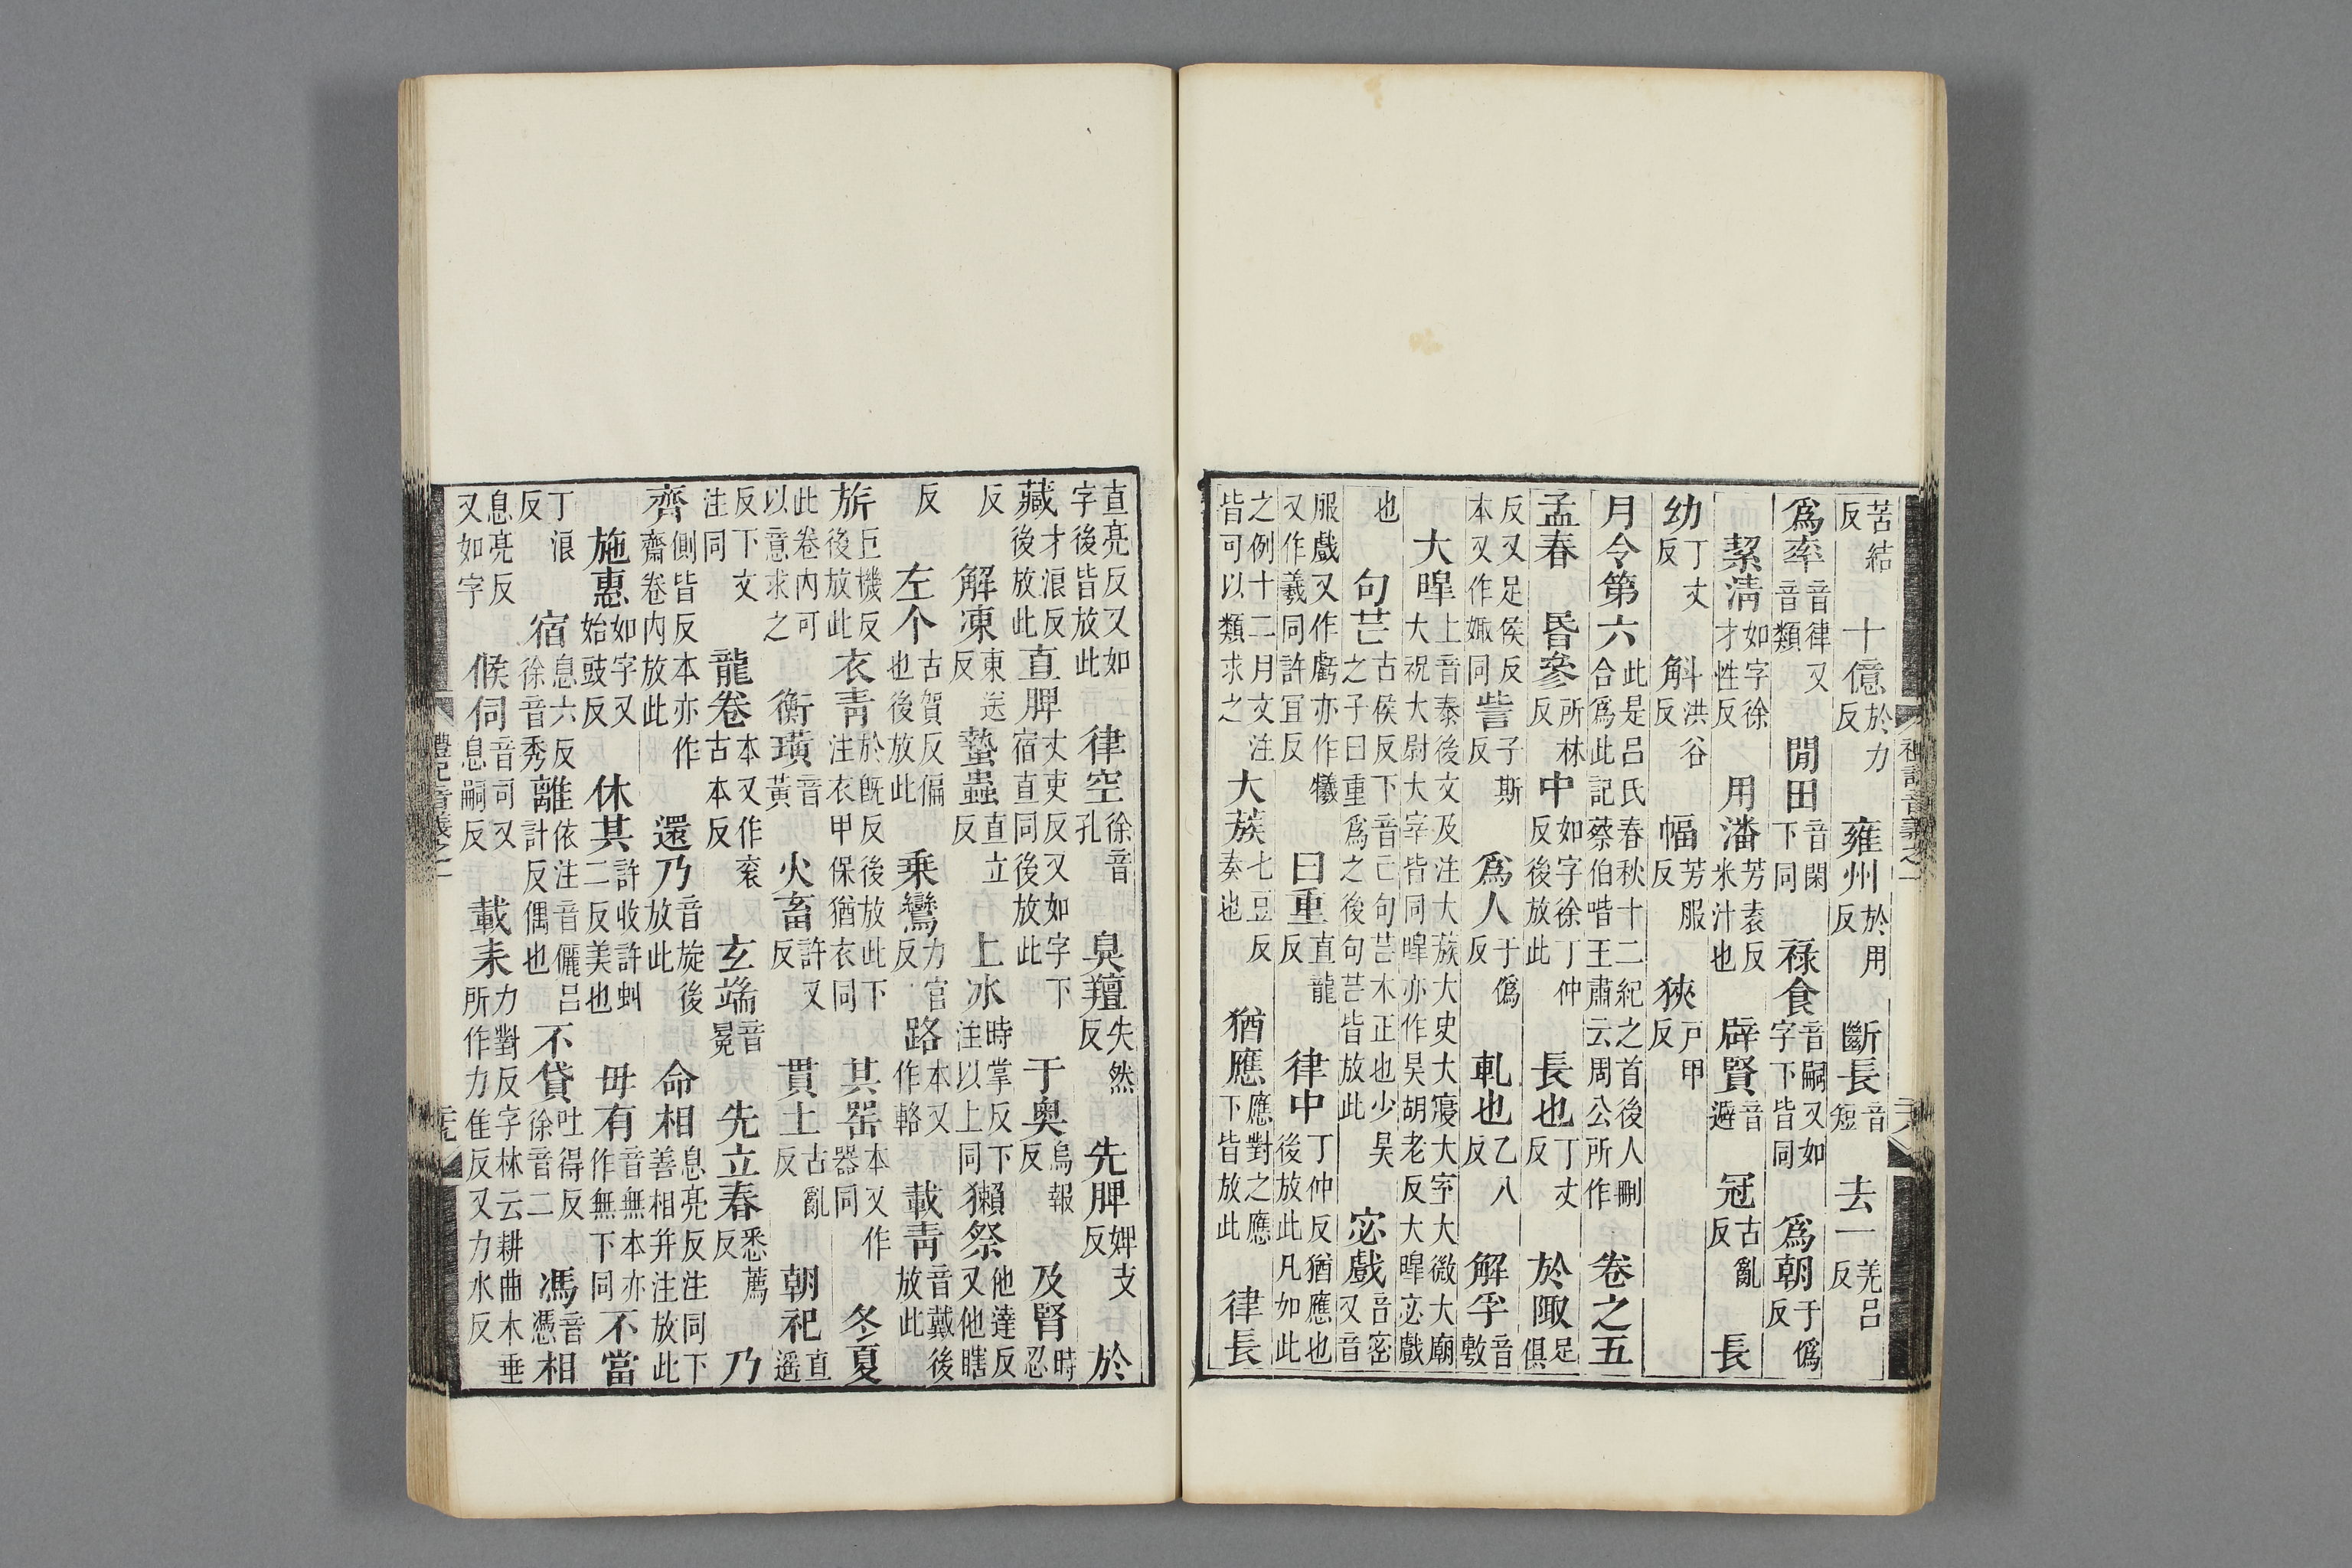 苦結反　十億於力反　雍州於用反　斷長音短　去一羌呂反
爲率音律又音類　閒田音閑下同　禄食音嗣又如字下皆同　爲朝于僞反
絜清如字徐才性反　用潘芳袁反米汁也　辟賢音避　冠古亂反　長
幼丁丈反　斛洪谷反　幅芳服反　狹戸甲反
月令第六此是吕氏春秋十二紀之首後人刪合爲此記蔡伯喈王肅云周公所作　卷之五
孟春　昏參所林反　中如字徐丁仲反後放此　長也丁丈反　於陬足俱
反又足侯反本又作娵同　訾子斯反　爲人于僞反　軋也乙八反　解孚音敷
大皞上音泰後文及注大蔟大史大寢大室大微大廟大祝大尉大宰皆同皞亦作昊胡老反大皞宓戲
也　句芒古侯反下音亡句芒木正也少昊之子曰重爲之後句芒皆放此　宓戲音密又音
服戲又作虙亦作犧又作羲同許宜反　曰重直龍反　律中丁仲反猶應也後放此凡如此
之例十二月文注皆可以類求之　大蔟七豆反奏也　猶應應對之應下皆放此　律長
直亮反又如字後皆放此　律空徐音孔　臭羶失然反　先脾婢支反　於
藏才浪反後放此　直脾丈吏反又如字下宿直同後放此　于奥烏報反　及腎時忍
反　解凍東送反　蟄蟲直立反　上冰時掌反下注以上同　獺祭他達反又他瞎
反　左个古賀反偏也後放此　乗鸞力官反　路本又作輅　載青音戴後放此
旂巨機反後放此　衣青於既反後放此下注衣衣甲保猶衣同　其噐本又作器同　冬夏
此卷内可以意求之　衡璜音黄　火畜許又反　貫土古亂反　朝祀直遥
反下文注同　龍卷本又作衮古本反　玄端音冕　先立春悉薦反　乃
齊側皆反本亦作齋卷内放此　還乃音旋後放此　命相息亮反注同下善相并注放此
施惠如字又始豉反　休其許收許虯二反美也　毋有音無本亦作無下同　不當
丁浪反　宿息六反徐音秀　離依注音儷呂計反偶也　不貸吐得反徐音二　馮音憑　相
息亮反又如字　候伺音司又息嗣反　載耒力對反字林云耕曲木垂所作力隹反又力水反
禮記音義之一